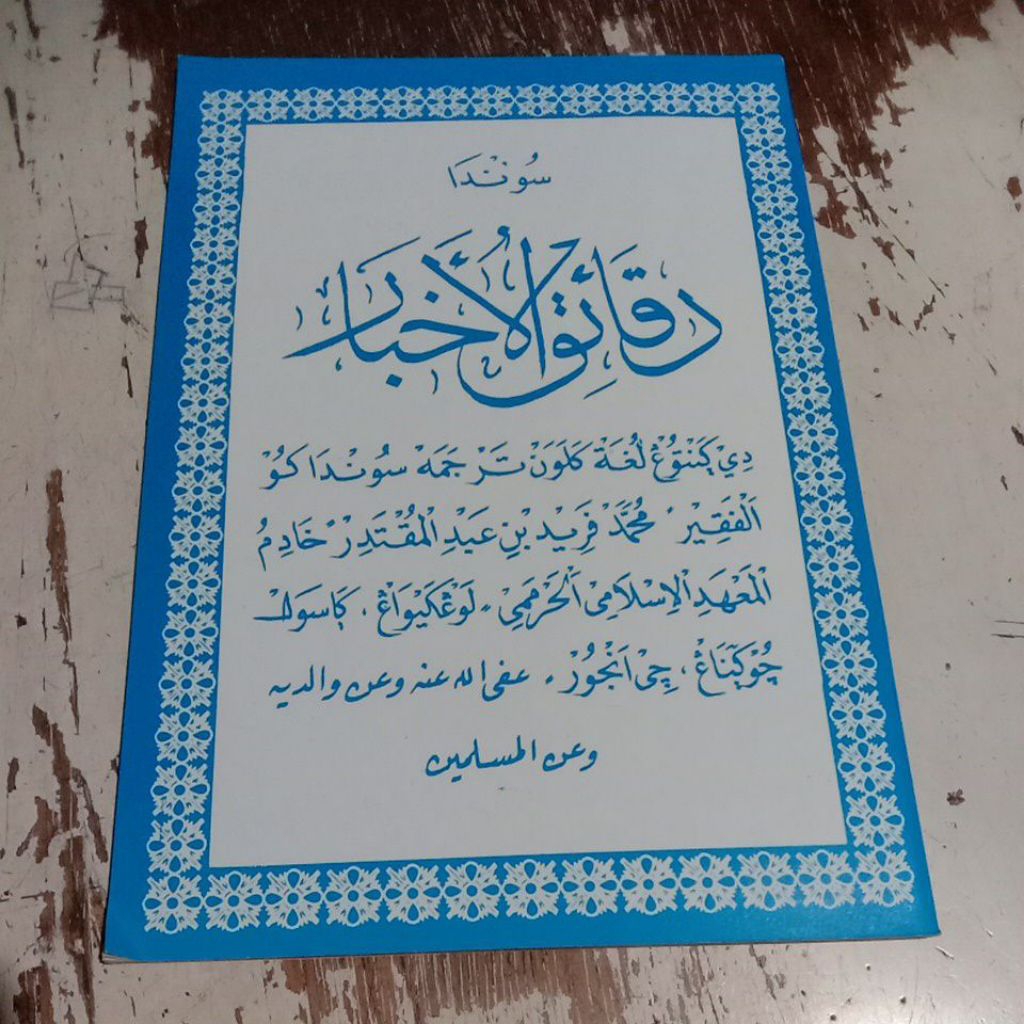 سُوْنْدَا
دَقَائِقُ الْأَخْبَارْ
دِيْ كَنْتُوْڠْ لُغَةْ كَلَوَنْ تَرْجَمَهْ سُوْنْدَا كُوْ
اَلْفَقِيْرْ مُحَمَّدْ فَرِيْدْ بِنِ عَبْدِ الْمُقْتَدِرْ خَادِمُ
الْمَعْهَدِ الْاِسْلَامِيْ اَلْحَرْمَمِيْ لَوْڠْكَيْوَاڠْ، كَاسَوَكْ
چُوْكَنَاڠْ، چِيْ اَنْجُوْرْ. عفى الله عنه وعن والديه
وعن المسلمين